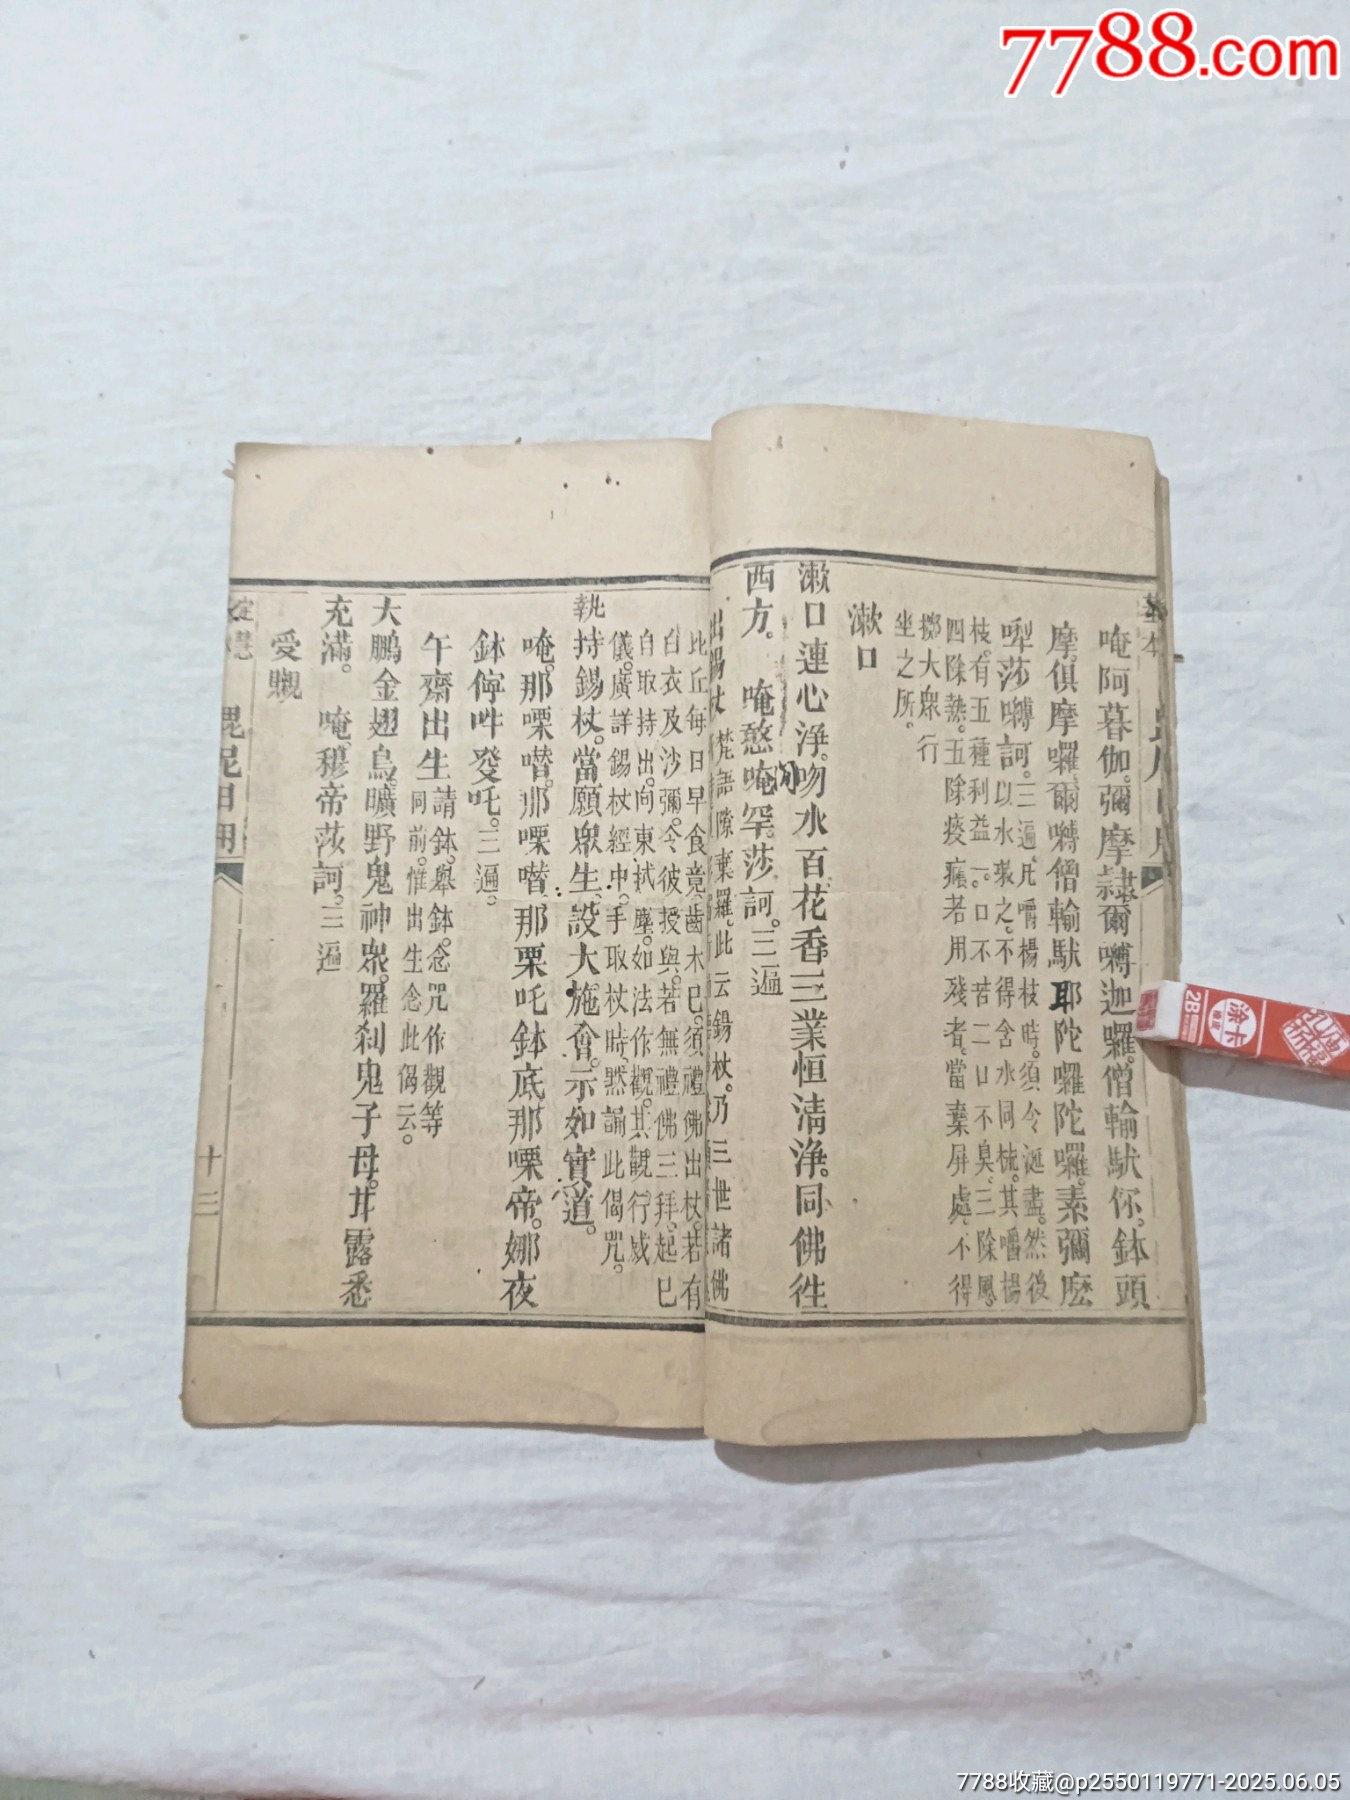 7788.com
唵阿暮伽。彌摩隷爾嚩迦囉。僧輸馱你。鉢頭
摩。俱摩囉。爾嚩僧輸馱耶。陀囉陀囉。素彌麽
唎莎嚩訶。三遍。凡嚼楊枝時。須令涎盡。然後
以水漱之。不得含水同梳。其嚼楊
枝。有五種利益。一。口不苦二口不臭。三除風。
四除熱。五除痰癊。若用殘者。當棄屏處。不得
擲大眾行
坐之所。
漱口
漱口連心淨。吻水百花香。三業恒清淨。同佛往
西方。 唵憨唵罕。莎訶。三遍
出錫杖 此云錫杖。乃三世諸佛
比丘每日早食竟。齒木已。須禮佛出杖。若有
白衣及沙彌。令彼授與。若無禮佛三拜。起已
自取持出。向東拭塵。如法作觀。其觀行威
儀。廣詳錫杖經中。手取杖時。默誦此偈咒。
執持錫杖。當願眾生。設大施會。示如實道。
唵。那㗚嚌。那㗚嚌。那栗吒鉢底。那㗚帝。娜夜
鉢儜吽癹吒。三遍。
午齋出生 請鉢。舉鉢。念咒作觀等
同前。惟出生念此偈云。
大鵬金翅鳥。曠野鬼神眾。羅刹鬼子母。甘露悉
充滿。 唵。穆帝莎訶。三遍
受䞋
毘尼日用
十三
2B
涂卡
7788收藏@p2550119771-2025.06.05